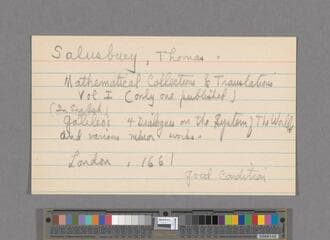 Salusbury, Thomas.
Mathematical Collections & Translations
Vol I (only one published)
(In English)
Galileo's 4 Dialogues on the System of The World
and various minor works.
London, 1661
good condition